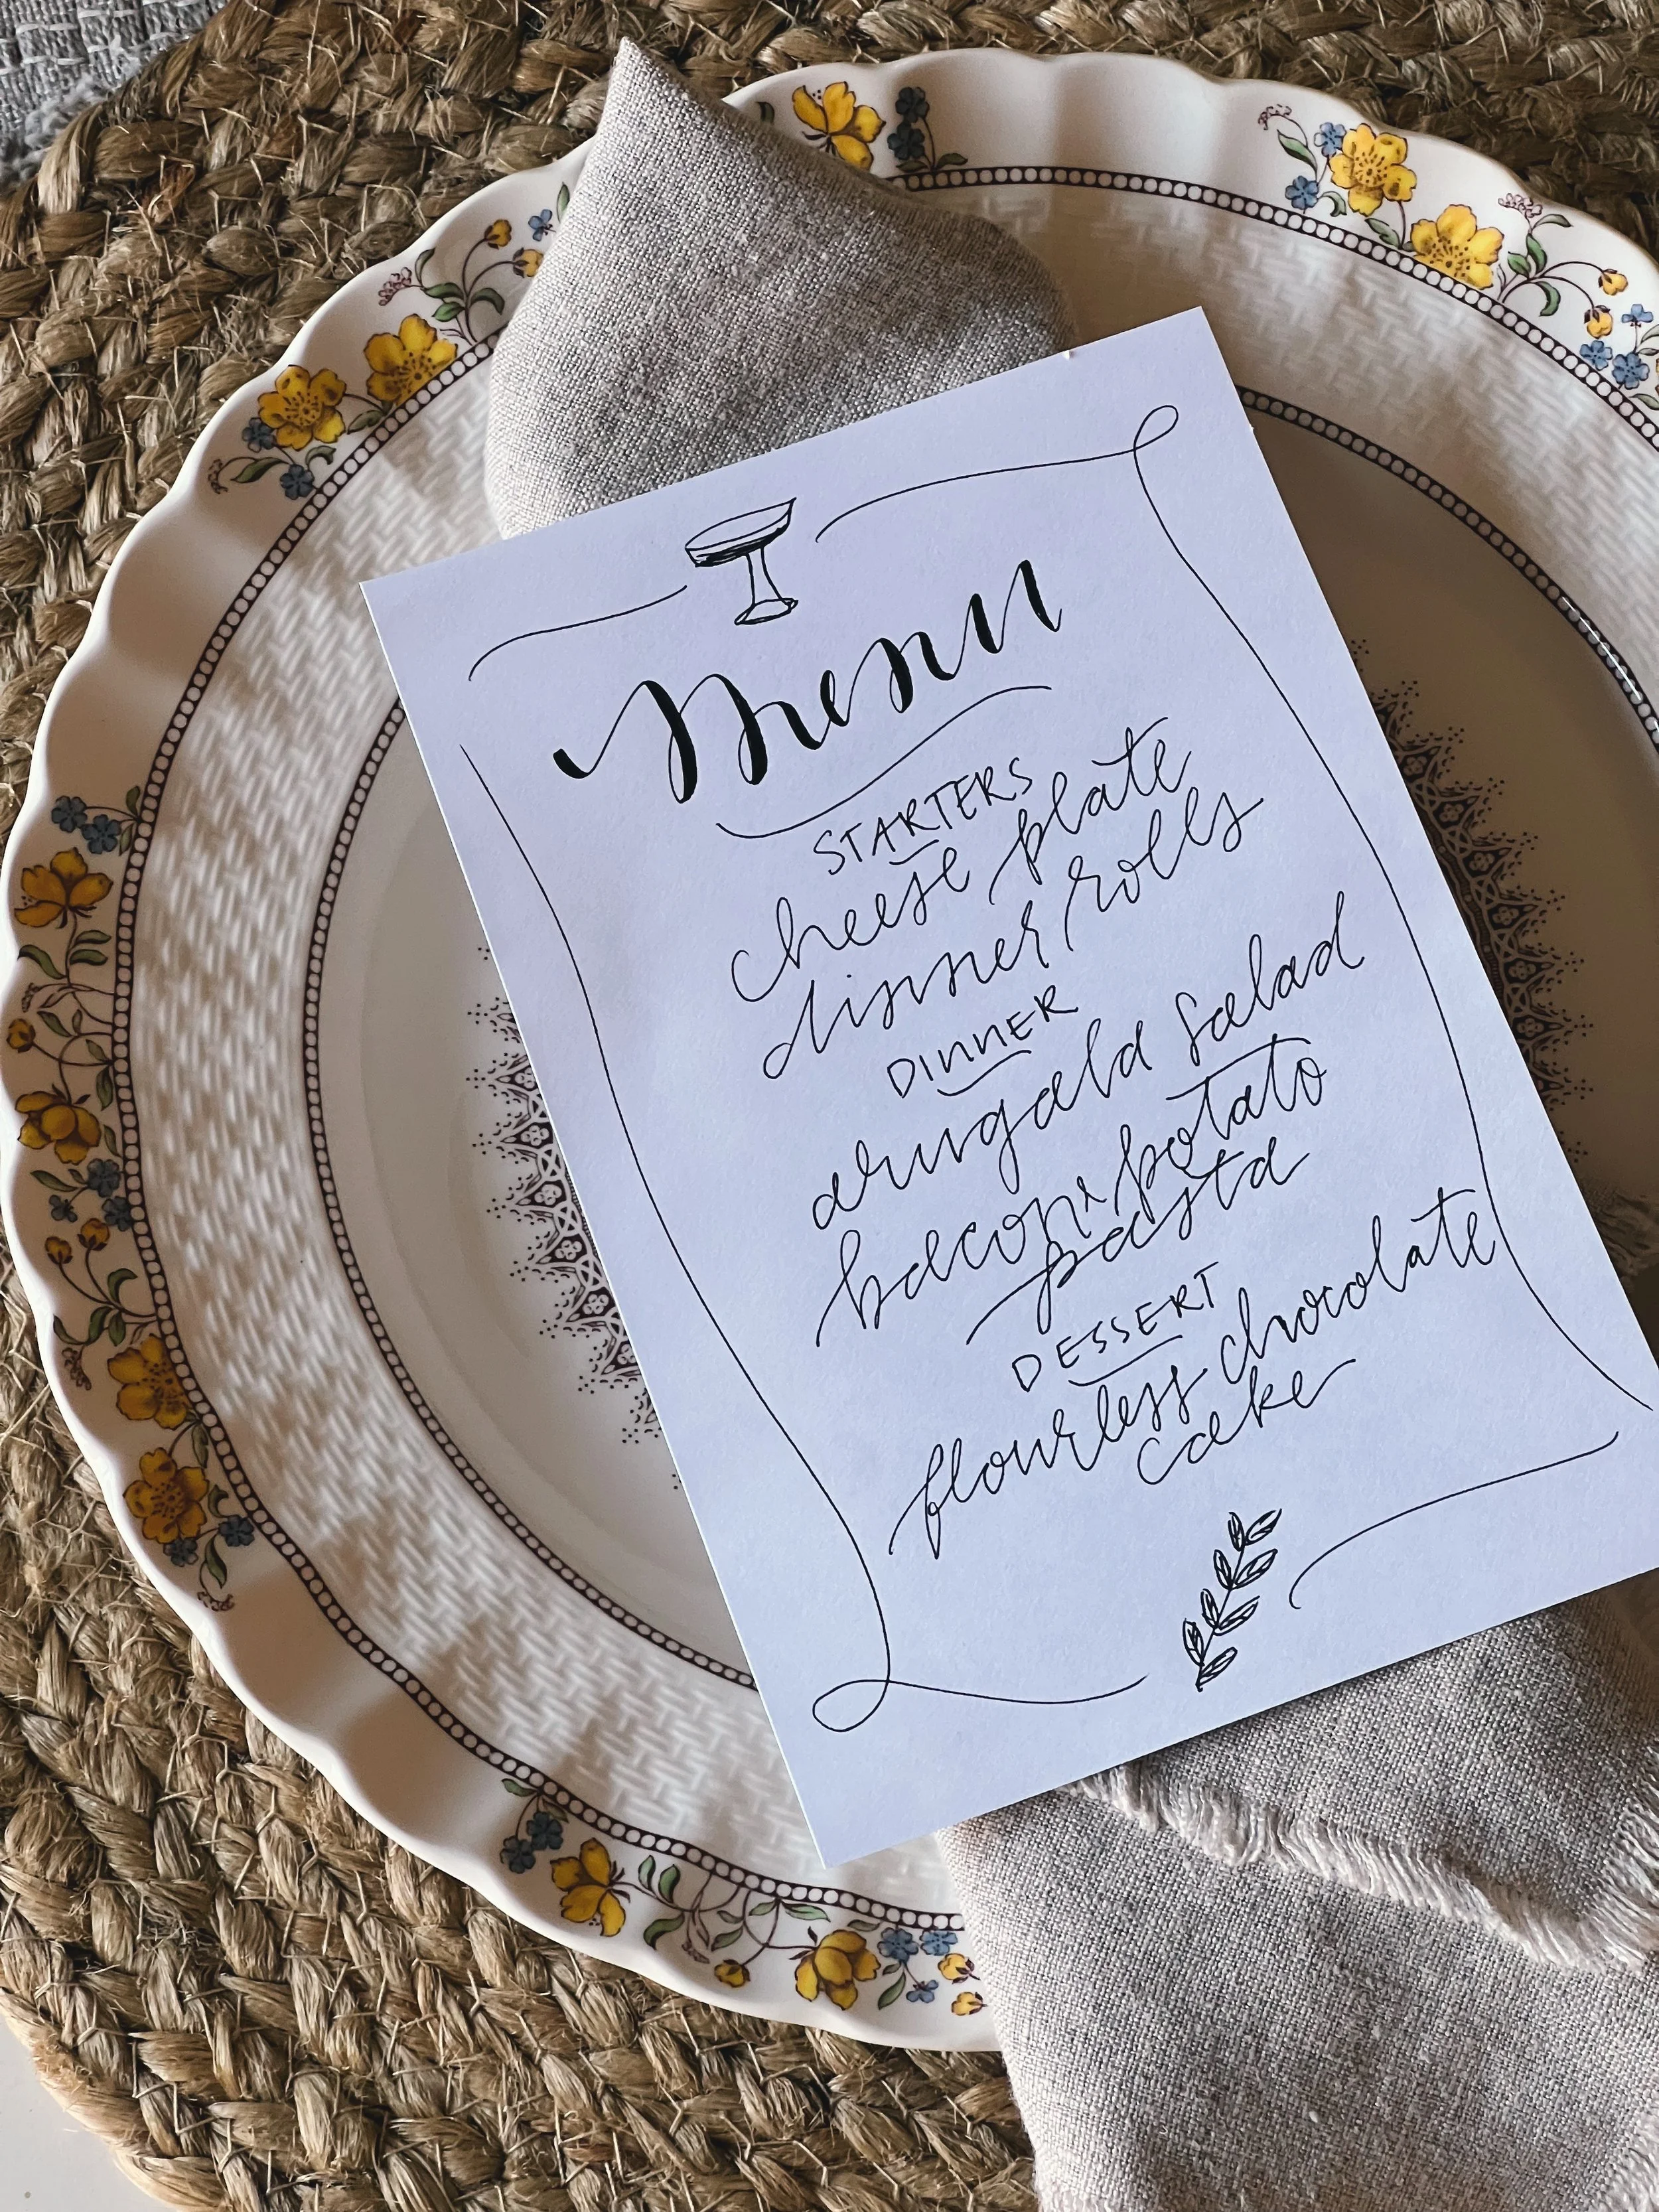 Menu
STARTERS
cheese plate
dinner rolls
DINNER
arugala salad
bacon & potato
pasta
DESSERT
flourless chocolate
cake